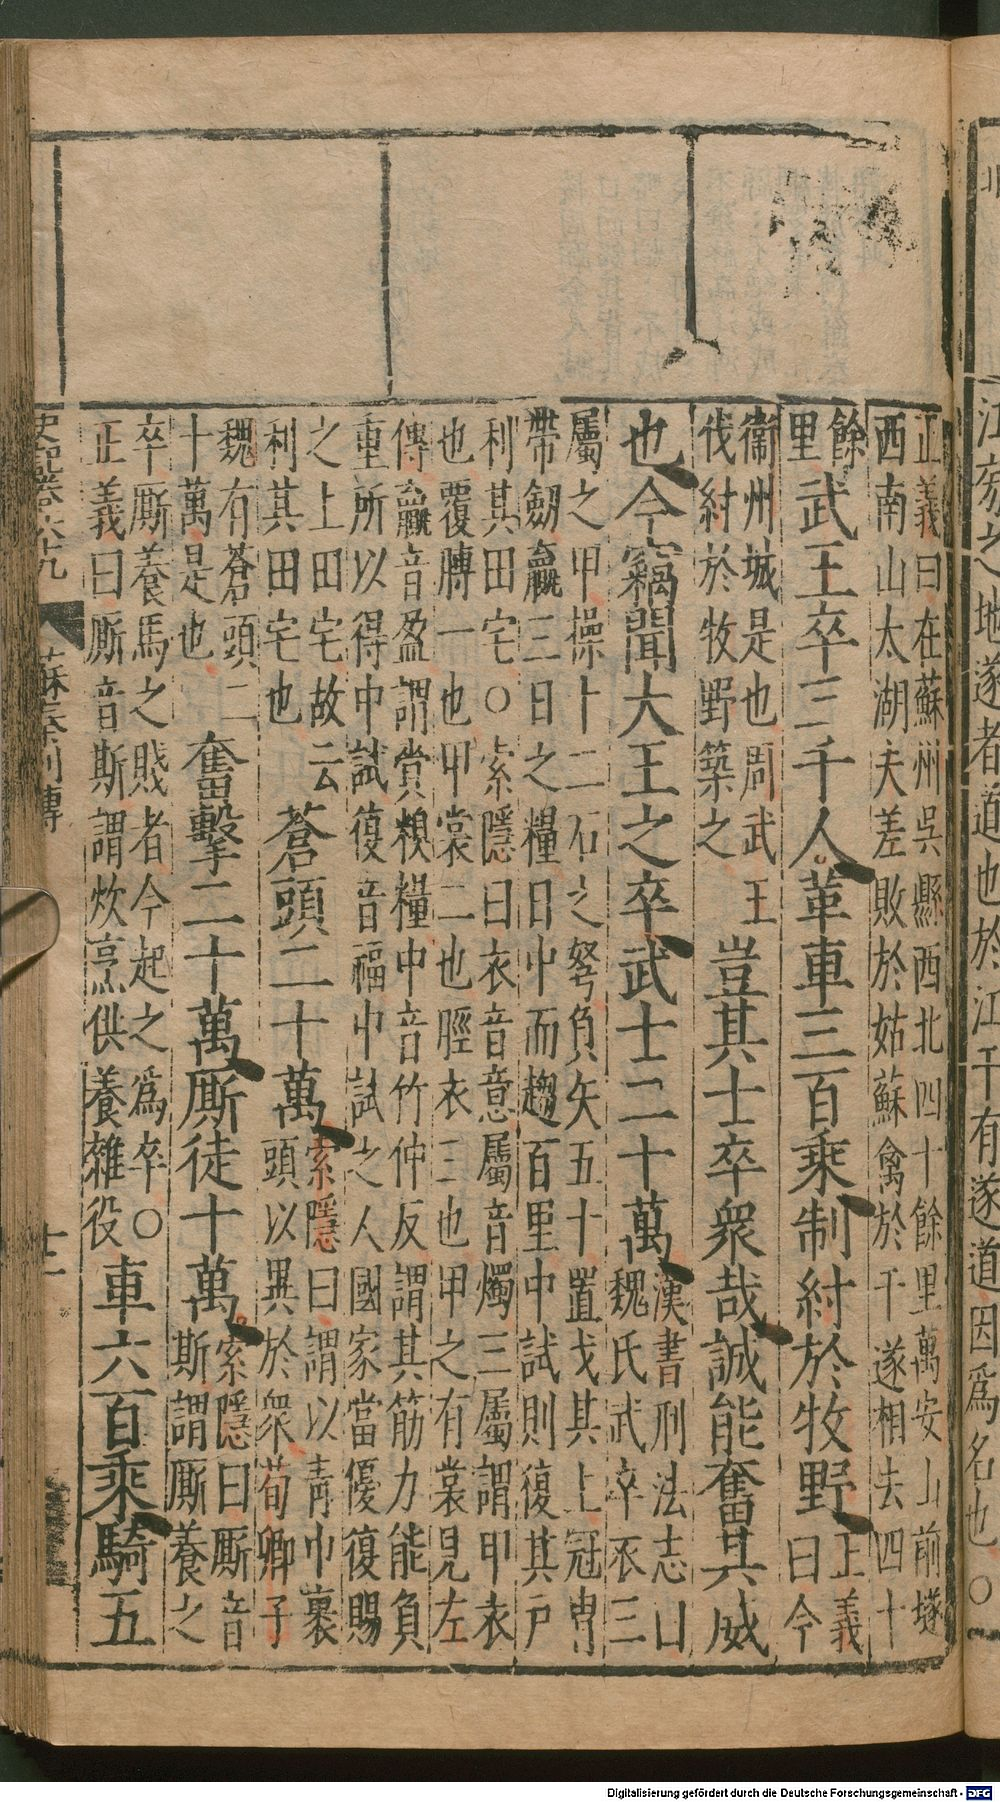 江旁之地遂者道也於江干有遂道因爲名也○
正義曰在蘇州吳縣西北四十餘里萬安山前墢
西南山太湖夫差敗於姑蘇禽於干遂相去四十
餘
里武王卒三千人革車三百乘制紂於牧野正義
曰今
衞州城是也周武王
伐紂於牧野築之豈其士卒衆哉誠能奮其威
也今竊聞大王之卒武士二十萬漢書刑法志曰
魏氏武卒衣三
屬之甲操十二石之弩負矢五十置戈其上冠冑
帶劒贏三日之糧日中而趨百里中試則復其戸
利其田宅○索隱曰衣音意屬音燭三屬謂甲衣
也覆膊一也甲裳二也脛衣三也甲之有裳見左
傳贏音盈謂賞糗糧中音竹仲反謂其筋力能負
重所以得中試復音福中試之人國家當優復賜
之上田宅故云
利其田宅也蒼頭二十萬索隱曰謂以靑巾裹
頭以異於衆荀卿子
魏有蒼頭二
十萬是也奮擊二十萬厮徒十萬索隱曰厮音
斯謂厮養之
卒厮養馬之賤者今起之爲卒○
正義曰厮音斯謂炊烹供養雜役車六百乘騎五
史記卷六十九
蘇秦列傳
十二
Digitalisierung gefördert durch die Deutsche Forschungsgemeinschaft - DFG